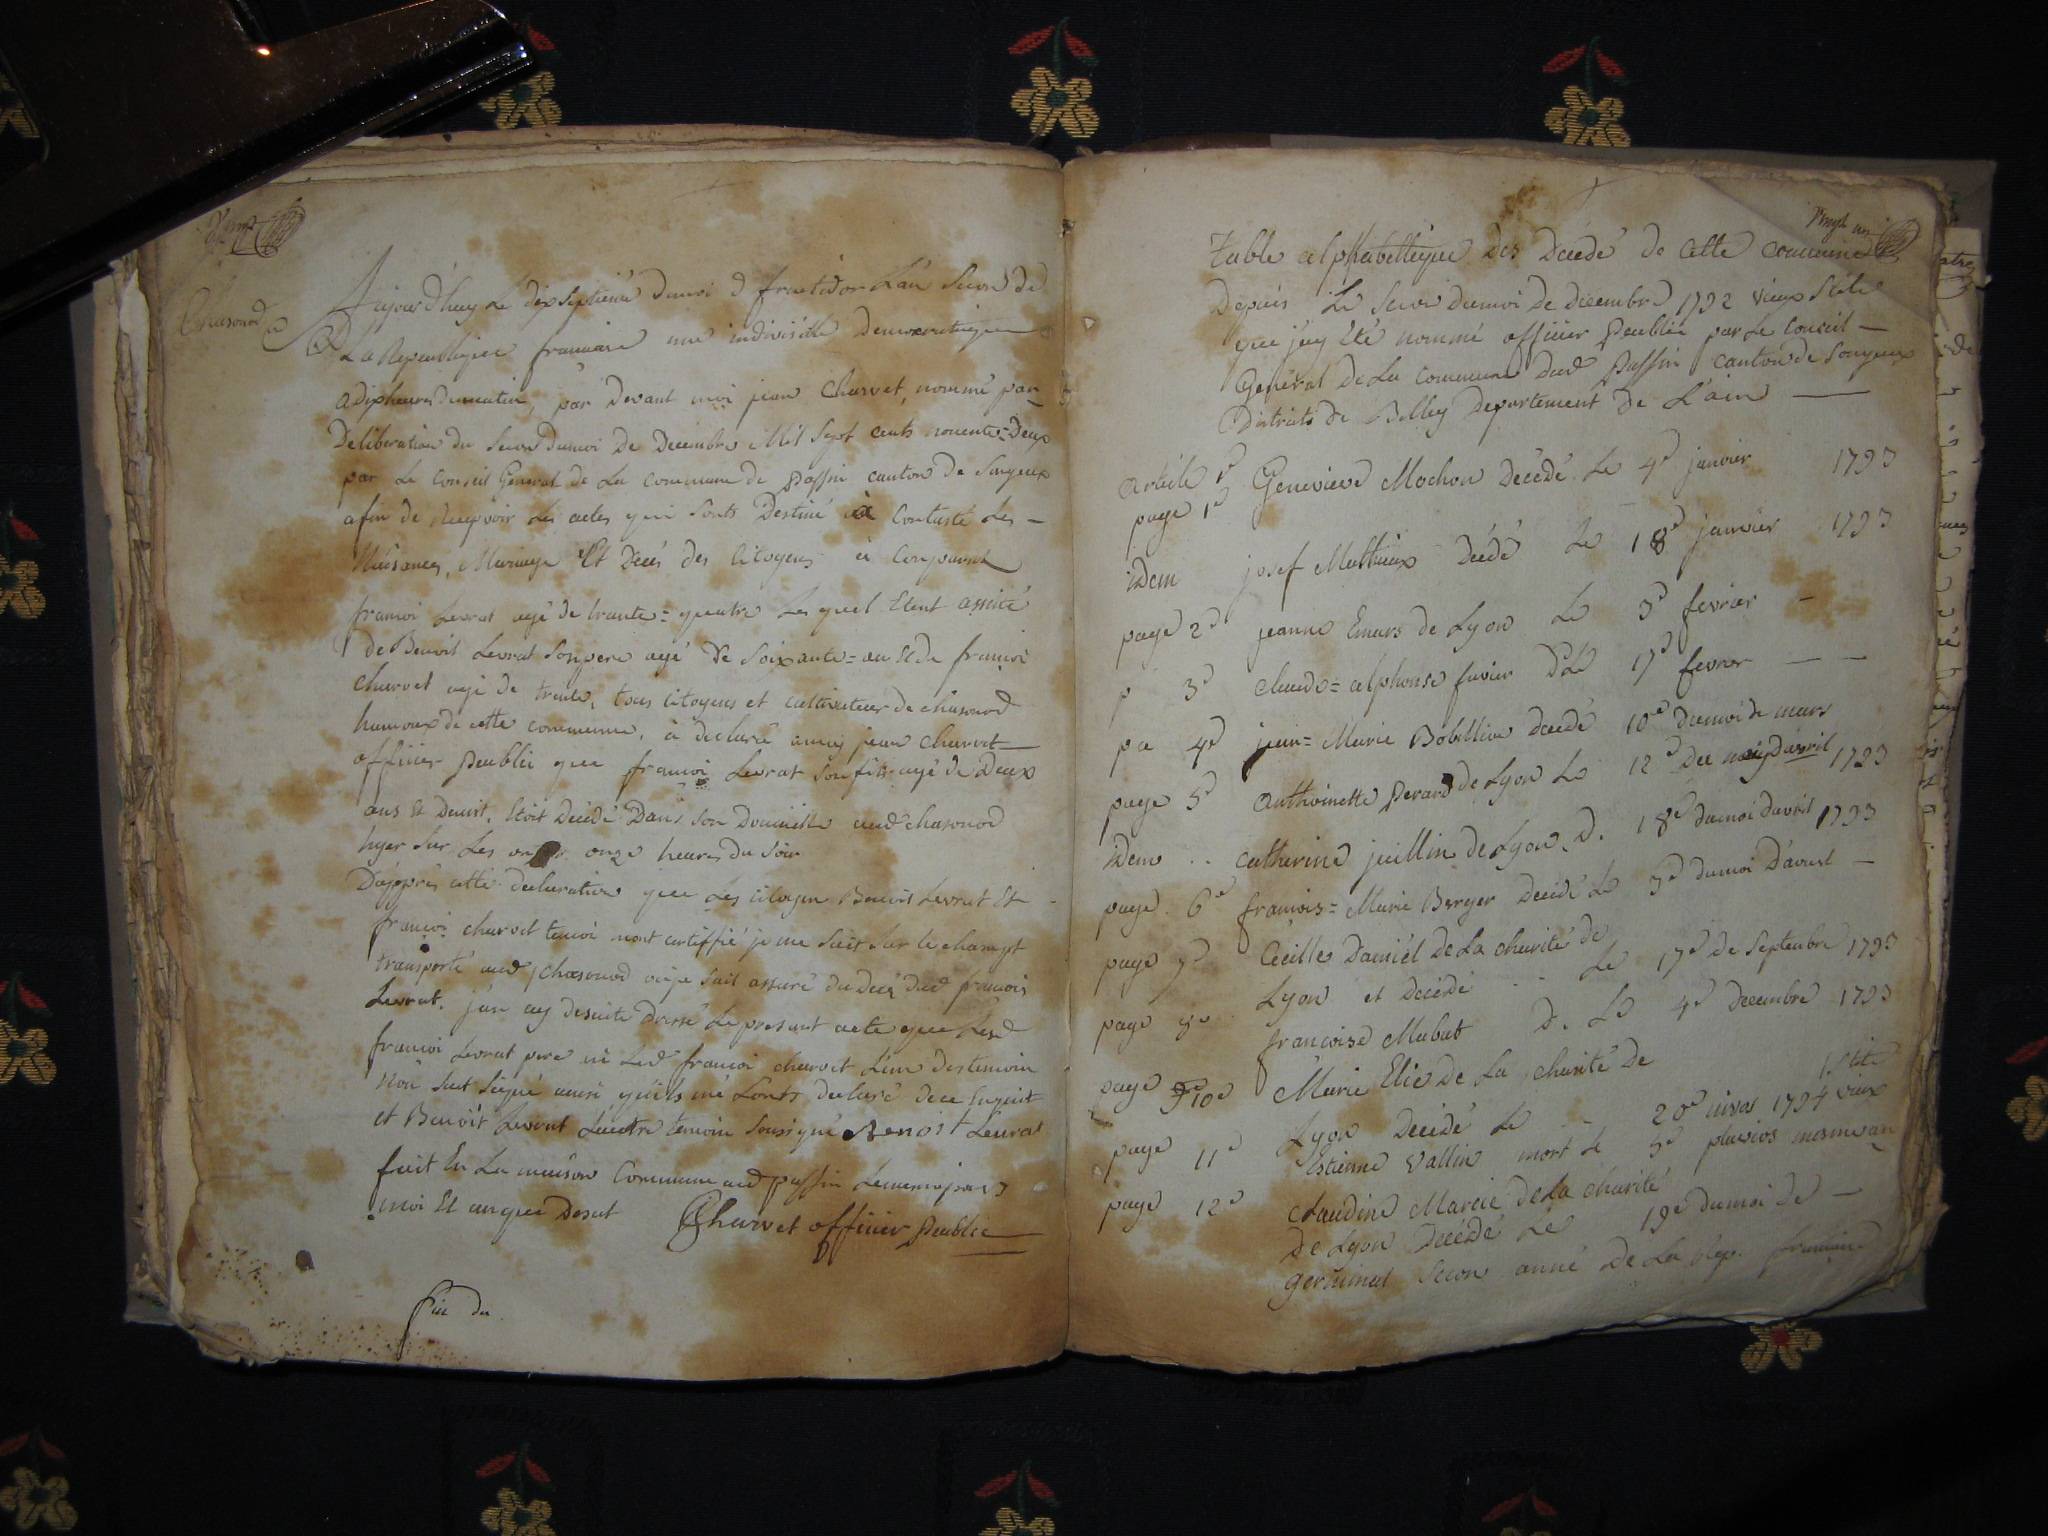 Chasonod
Aujourd'huy Le dix septieme dumoi d fructidor L'an Secon de
La Republique francaise une indivisible Democratique
a dix heures dumatin, par devant moi jean Charvet, nommé par
Deliberation du Secon dumoi De Decembre Mil Sept cents nonente=Deux
par Le Conseil General de La Commune de passin canton de Songeux
afin de Recepvoir Les actes qui Sonts Destiné à Contasté Les —
Naisances, Mariage Et Decés des Citoyens à Comparut
francoi Levrat agé de trante=quatre Les quel Etent assisté
de Benoit Levrat Son pere agé de Soixante=un Et de francoi
Charvet agé de trente, tous Citoyens et cultivateur de chasonod
hamoux de cette commune, à declaré amoy jean charvet
officier Peublic que francoi Levrat Son fils agé de Deux
ans Et Demit, Etoit Décédé Dans Son Domicille aud chasonod
hyer Sur Les onze heures du Soir
D'apprés cette declaration que Les Citoyen Benoit Levrat Et
francoi charvet temoi mont certiffié je me Suit Sur le champt
transporté aud chasonod ou je Suit assuré du Decé dud francois
Levrat, j'an ay desuite Dressé Le present acte que Lesd
francoi Levrat pere ni Led francoi charvet L'un des temoin
Non Sut Signé ainsi qu'ils me Lonts declaré de ce Enquit
et Benoit Levrat L'autre temoin Sousigné Benoit Levrat
fait En La maison Commune aud passin Lememe jour
moi Et an que Desut Charvet officier Peublic
fin du
Table alphabettique Des Décédé de Cette commune
Depuis Le Secon dumoi de Decembre 1792 vieux Stile
que j'ey Eté nommé officier Peublic par Le Conseil —
General De La Commune dud Passin canton de Songeux
Distrits de Belley Departement de L'ain —
Article 1er Genevieve Mochon Décédé Le 4e janvier 1793
page 1e
idem josef Mathieux Décédé Le 18e janvier 1793
page 2e jeanne Emars de Lyon Le 3e fevrier —
p 3e claude=alphonse D Le 17e fevrer — —
pa 4e jean=Marie Bobillion décédé 10e dumoi de mars
page 5e Anthoinette Perard de Lyon Le 12e Du moy D'avril 1793
idem .. catherine juillin de Lyon D. 18e dumoi davril 1793
page 6e francois=Marie Berger Décédé Le 3e dumoi D'avoust —
page 7e Cécille Daniél de La charité de
Lyon et Décédé .. Le 17e de Septenbre 1793
page 8e francoise Mabut D. Le 4e decembre 1793
page 10e Marie Elie de La charité de
Lyon Décédé Le — 20e nivos 1794 vieux Stile
page 11e Estienne Vallin mort le 5e pluvios mesme an
page 12e claudine Marcie de La charité
de Lyon Décédé Le 19e dumoi de —
germinal Secon anné De La Rep. francaise